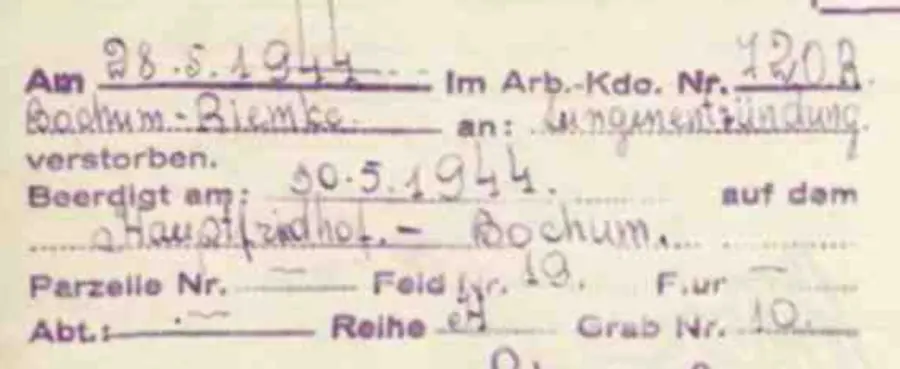 Am 28.5.1944 Im Arb.-Kdo. Nr. 720 R.
Bochum-Riemke. an: Lungenentzündung.
verstorben.
Beerdigt am: 30.5.1944. auf dem
Hauptfriedhof.- Bochum.
Parzelle Nr. — Feld Nr. 19. Flur —
Abt.: — Reihe A Grab Nr. 10.